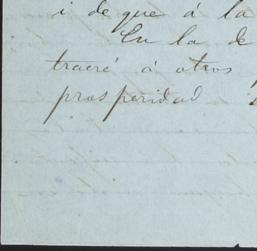 i de que á la
En la de
traeré á otros
prosperidad